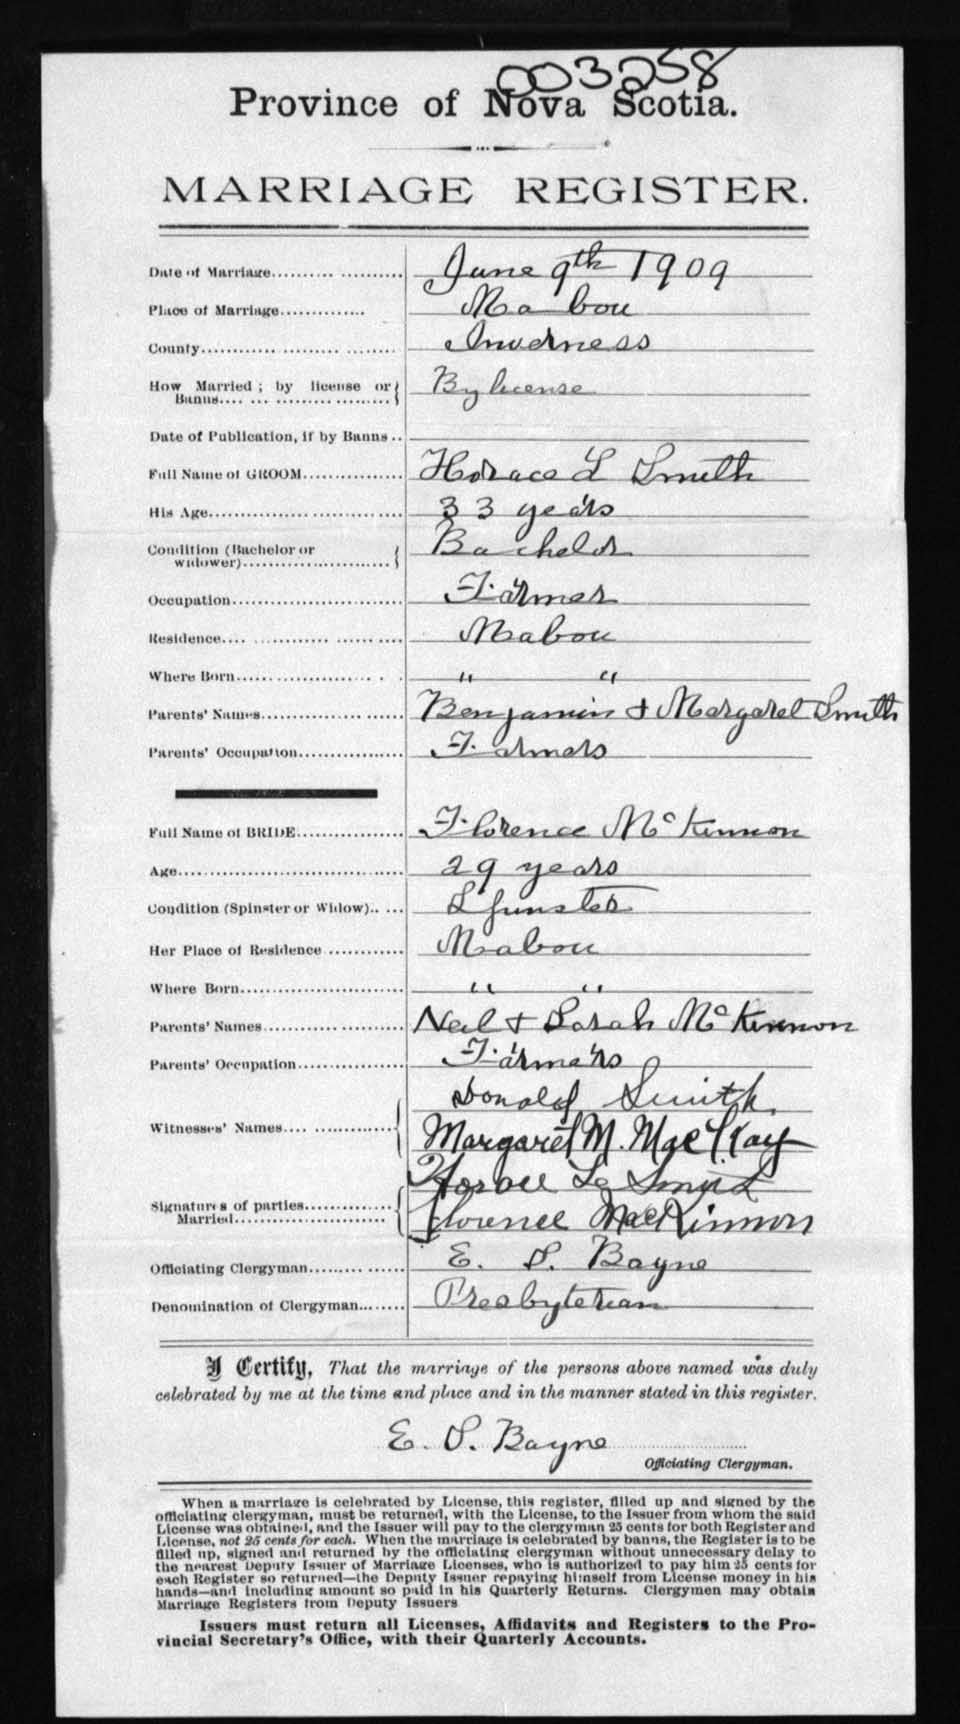 003258
Province of Nova Scotia.
MARRIAGE REGISTER.
Date of Marriage.......... .......... June 9th 1909
Place of Marriage.............. Mabou
County............ ......... ........ Inverness
How Married ; by license or By license
Banns.... ... .................
Date of Publication, if by Banns ..
Full Name of GROOM............... Horace L Smith
His Age.......................... 33 years
Condition (Bachelor or Bachelor
widower).......................
Occupation........................... Farmer
Residence.... ............ ...... ..... Mabou
Where Born..................... . . " "
Parents' Names.................. ...... Benjamin & Margaret Smith
Parents' Occupation................. Farmers
Full Name of BRIDE................. Florence McKinnon
Age.................................... 29 years
Condition (Spinster or Widow).. ... Spinster
Her Place of Residence ............ Mabou
Where Born.......................... " "
Parents' Names...................... Neil & Sarah McKinnon
Parents' Occupation................. Farmers
Donald Smith
Witnesses' Names.... ............. Margaret M. MacKay
Horace L Smith
Signatures of parties..............
Married........................ Florence MacKinnon
Officiating Clergyman......... ...... E. S. Bayne
Denomination of Clergyman......... Presbyterian
I Certify, That the marriage of the persons above named was duly
celebrated by me at the time and place and in the manner stated in this register.
E. S. Bayne
Officiating Clergyman.
When a marriage is celebrated by License, this register, filled up and signed by the
officiating clergyman, must be returned, with the License, to the Issuer from whom the said
License was obtained, and the Issuer will pay to the clergyman 25 cents for both Register and
License, not 25 cents for each. When the marriage is celebrated by banns, the Register is to be
filled up, signed and returned by the officiating clergyman without unnecessary delay to
the nearest Deputy Issuer of Marriage Licenses, who is authorized to pay him 25 cents for
each Register so returned—the Deputy Issuer repaying himself from License money in his
hands—and including amount so paid in his Quarterly Returns. Clergymen may obtain
Marriage Registers from Deputy Issuers
Issuers must return all Licenses, Affidavits and Registers to the Pro-
vincial Secretary's Office, with their Quarterly Accounts.